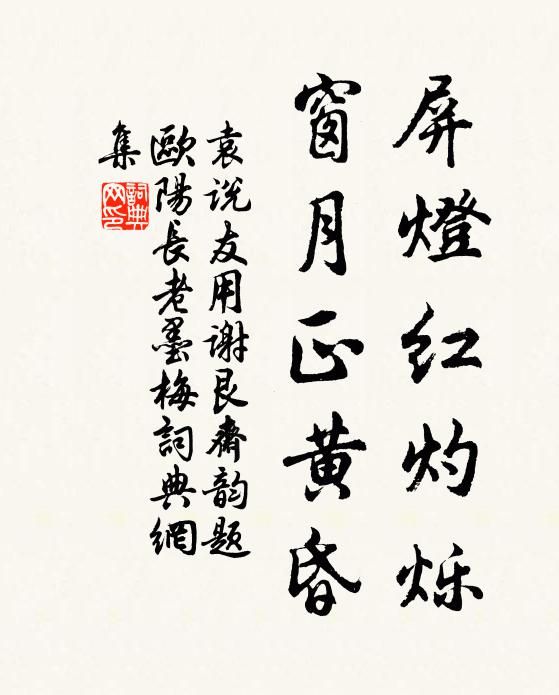 屏燈红灼烁
窗月正黄昏
袁说友用谢艮齋韵题
歐陽長老墨梅詞典網
集
詞典
网印